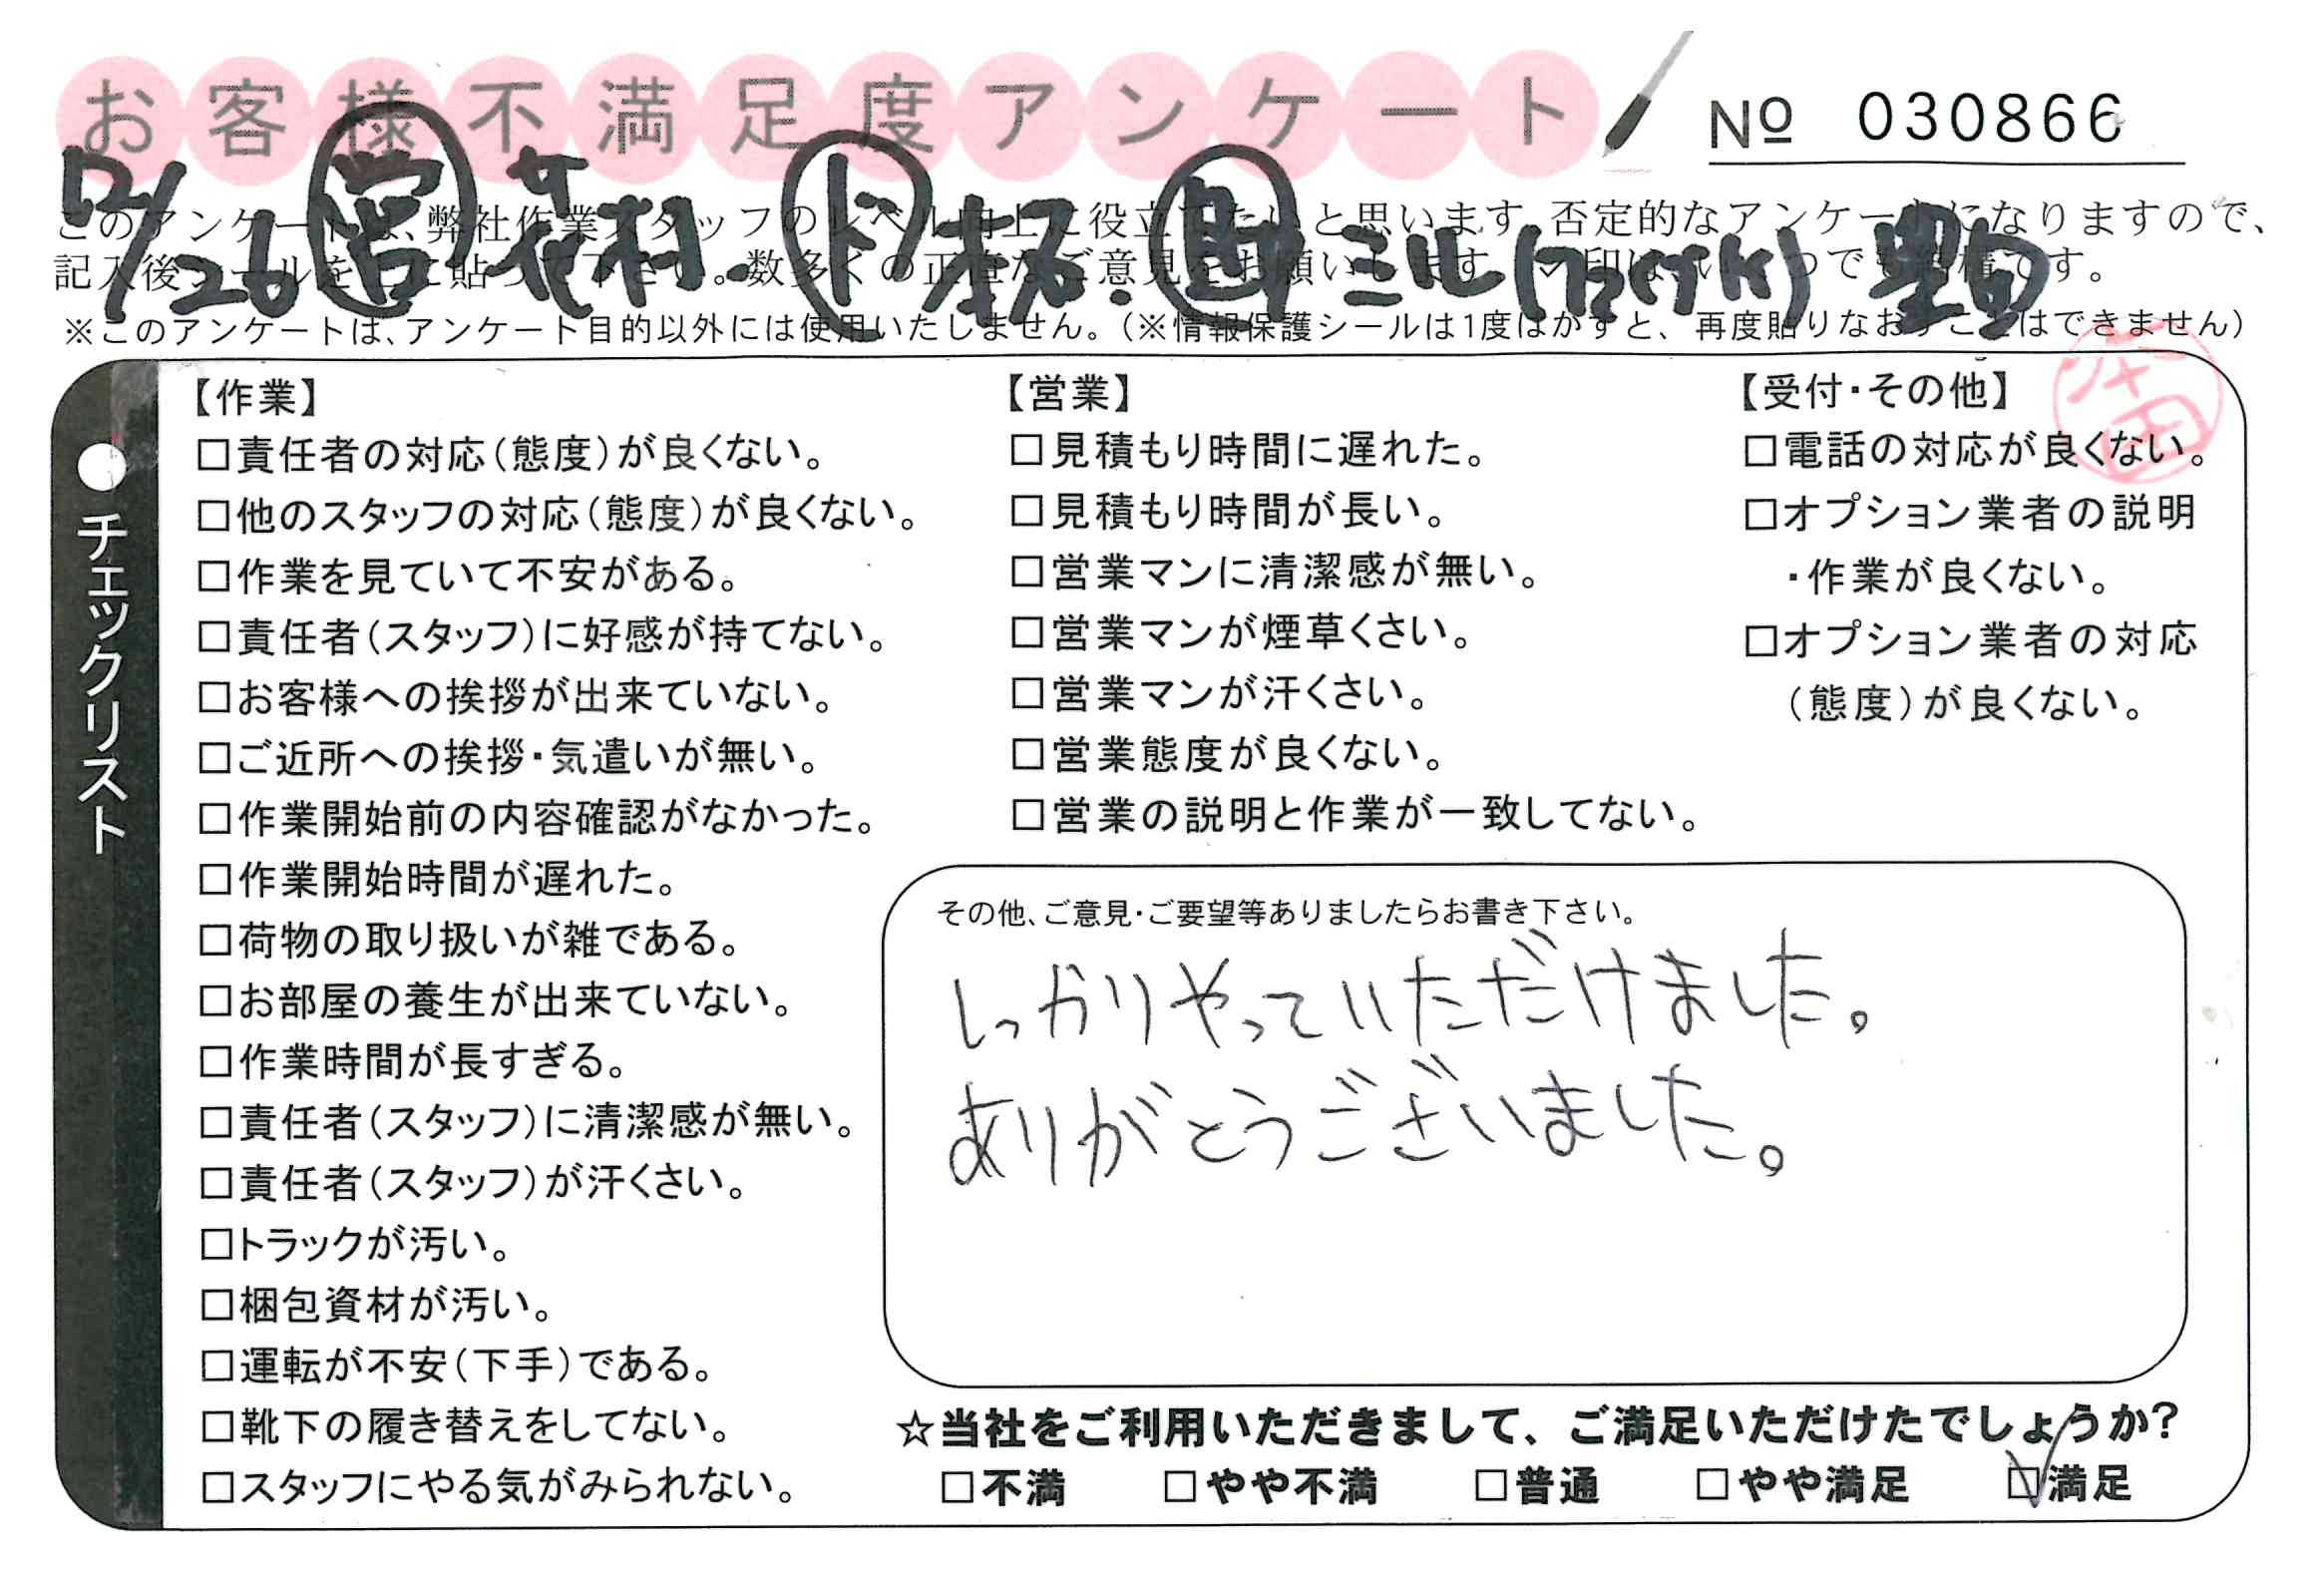 お客様不満足度アンケート
№ 030866
12/26 営 花村. ド 本多. 助 ミル
このアンケートは、弊社作業スタッフのレベル向上に役立てたいと思います。否定的なアンケートになりますので、
記入後シールをここに貼って下さい。数多くの正直なご意見をお願いします。
※このアンケートは、アンケート目的以外には使用いたしません。（※情報保護シールは1度はがすと、再度貼りなおすことはできません）
●チェックリスト
【作業】
□責任者の対応（態度）が良くない。
□他のスタッフの対応（態度）が良くない。
□作業を見ていて不安がある。
□責任者（スタッフ）に好感が持てない。
□お客様への挨拶が出来ていない。
□ご近所への挨拶・気遣いが無い。
□作業開始前の内容確認がなかった。
□作業開始時間が遅れた。
□荷物の取り扱いが雑である。
□お部屋の養生が出来ていない。
□作業時間が長すぎる。
□責任者（スタッフ）に清潔感が無い。
□責任者（スタッフ）が汗くさい。
□トラックが汚い。
□梱包資材が汚い。
□運転が不安（下手）である。
□靴下の履き替えをしてない。
□スタッフにやる気がみられない。
【営業】
□見積もり時間に遅れた。
□見積もり時間が長い。
□営業マンに清潔感が無い。
□営業マンが煙草くさい。
□営業マンが汗くさい。
□営業態度が良くない。
□営業の説明と作業が一致してない。
【受付・その他】
□電話の対応が良くない。
□オプション業者の説明
・作業が良くない。
□オプション業者の対応
（態度）が良くない。
その他、ご意見・ご要望等ありましたらお書き下さい。
しっかりやっていただけました。
ありがとうございました。
☆当社をご利用いただきまして、ご満足いただけたでしょうか？
□不満 □やや不満 □普通 □やや満足 ☑満足